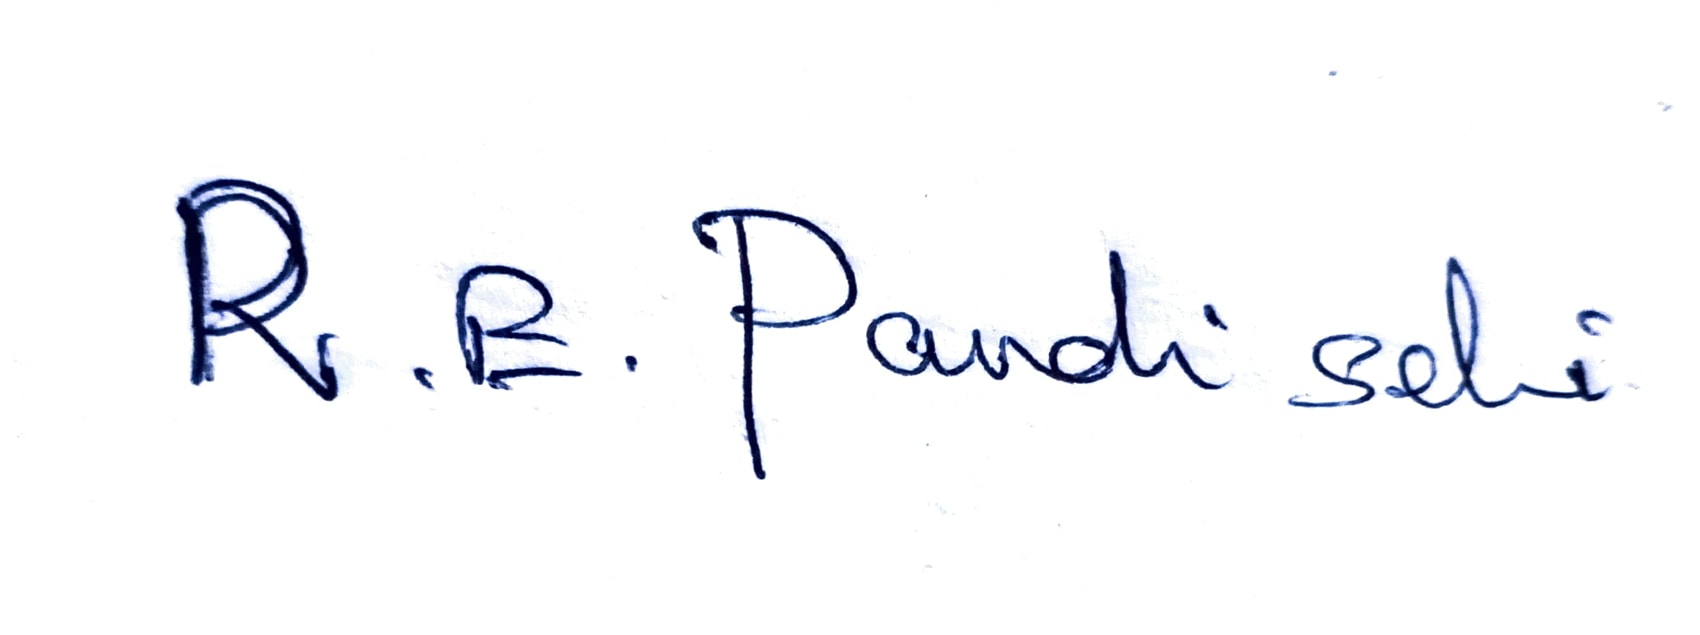 R. E. Pandi selvi